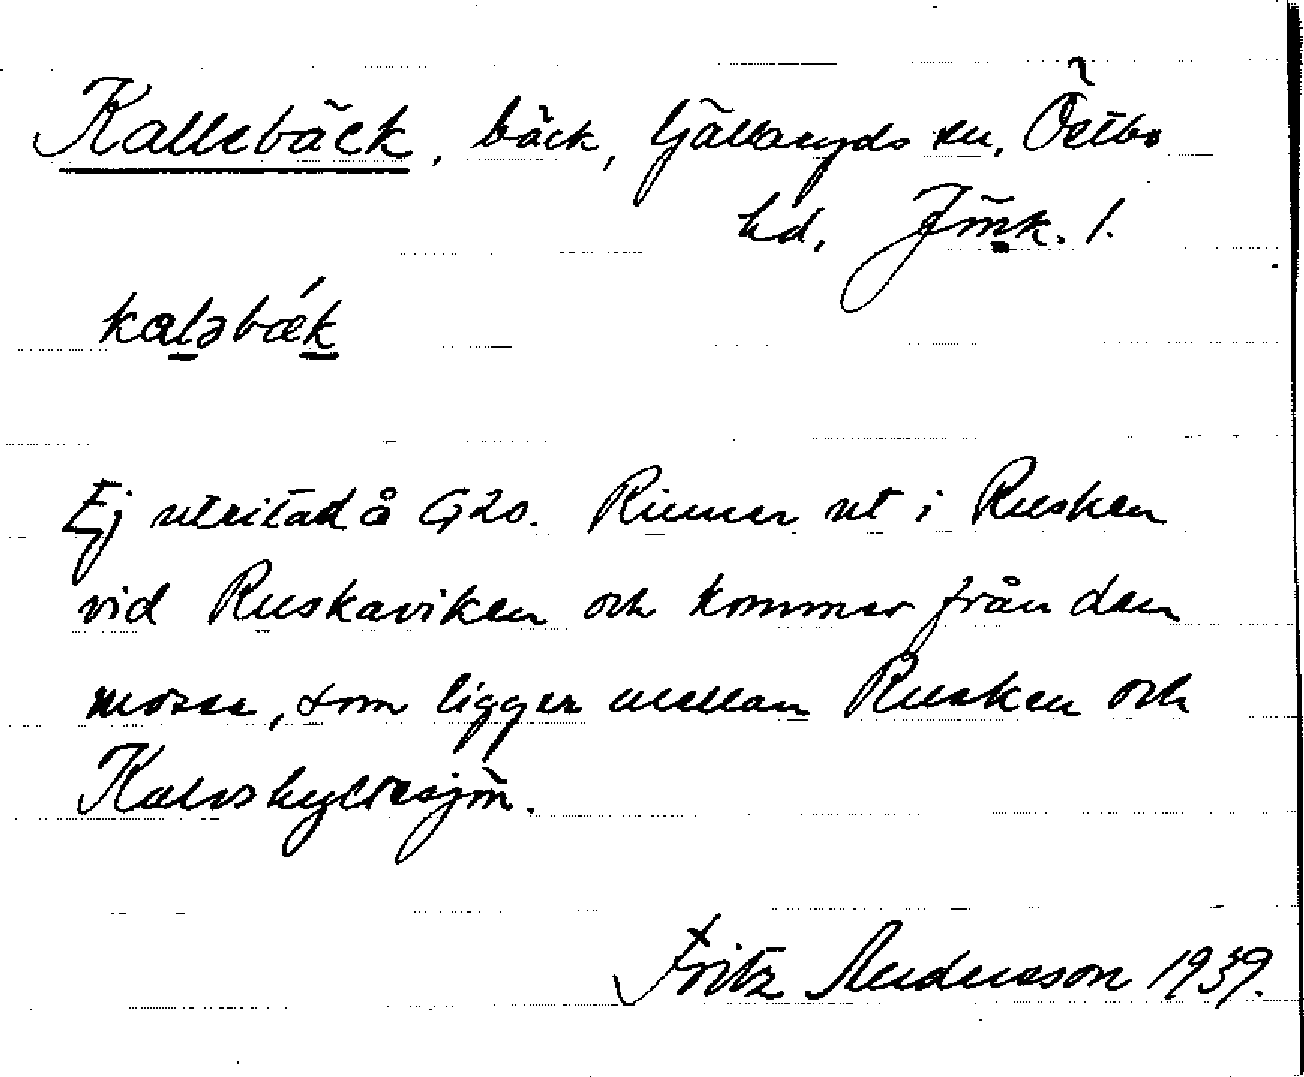 Kallebäck, bäck, Gällaryds sn, Östbo
hd, Jmk. l.
kaləbǽk
Ej utritad å G20. Rinner ut i Rusken
vid Ruskaviken och kommer från den
mosse, som ligger mellan Rusken och
Kalvshyltesjön.
Fritz Andersson 1939.